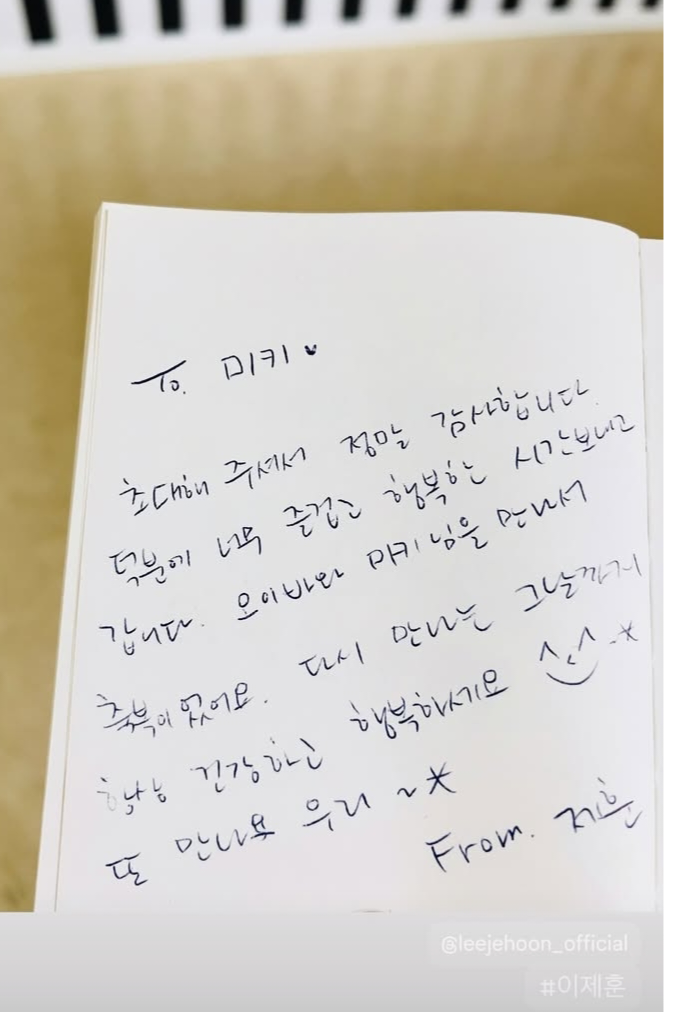 To. 미키♥
초대해 주셔서 정말 감사합니다.
덕분에 너무 즐겁고 행복한 시간보내고
갑니다. 오이바와 미키님을 만나서
축복이었어요. 다시 만나는 그날까지
항상 건강하고 행복하세요 ^^~*
또 만나요 우리 ~*
From. 제훈
@leejehoon_official
#이제훈